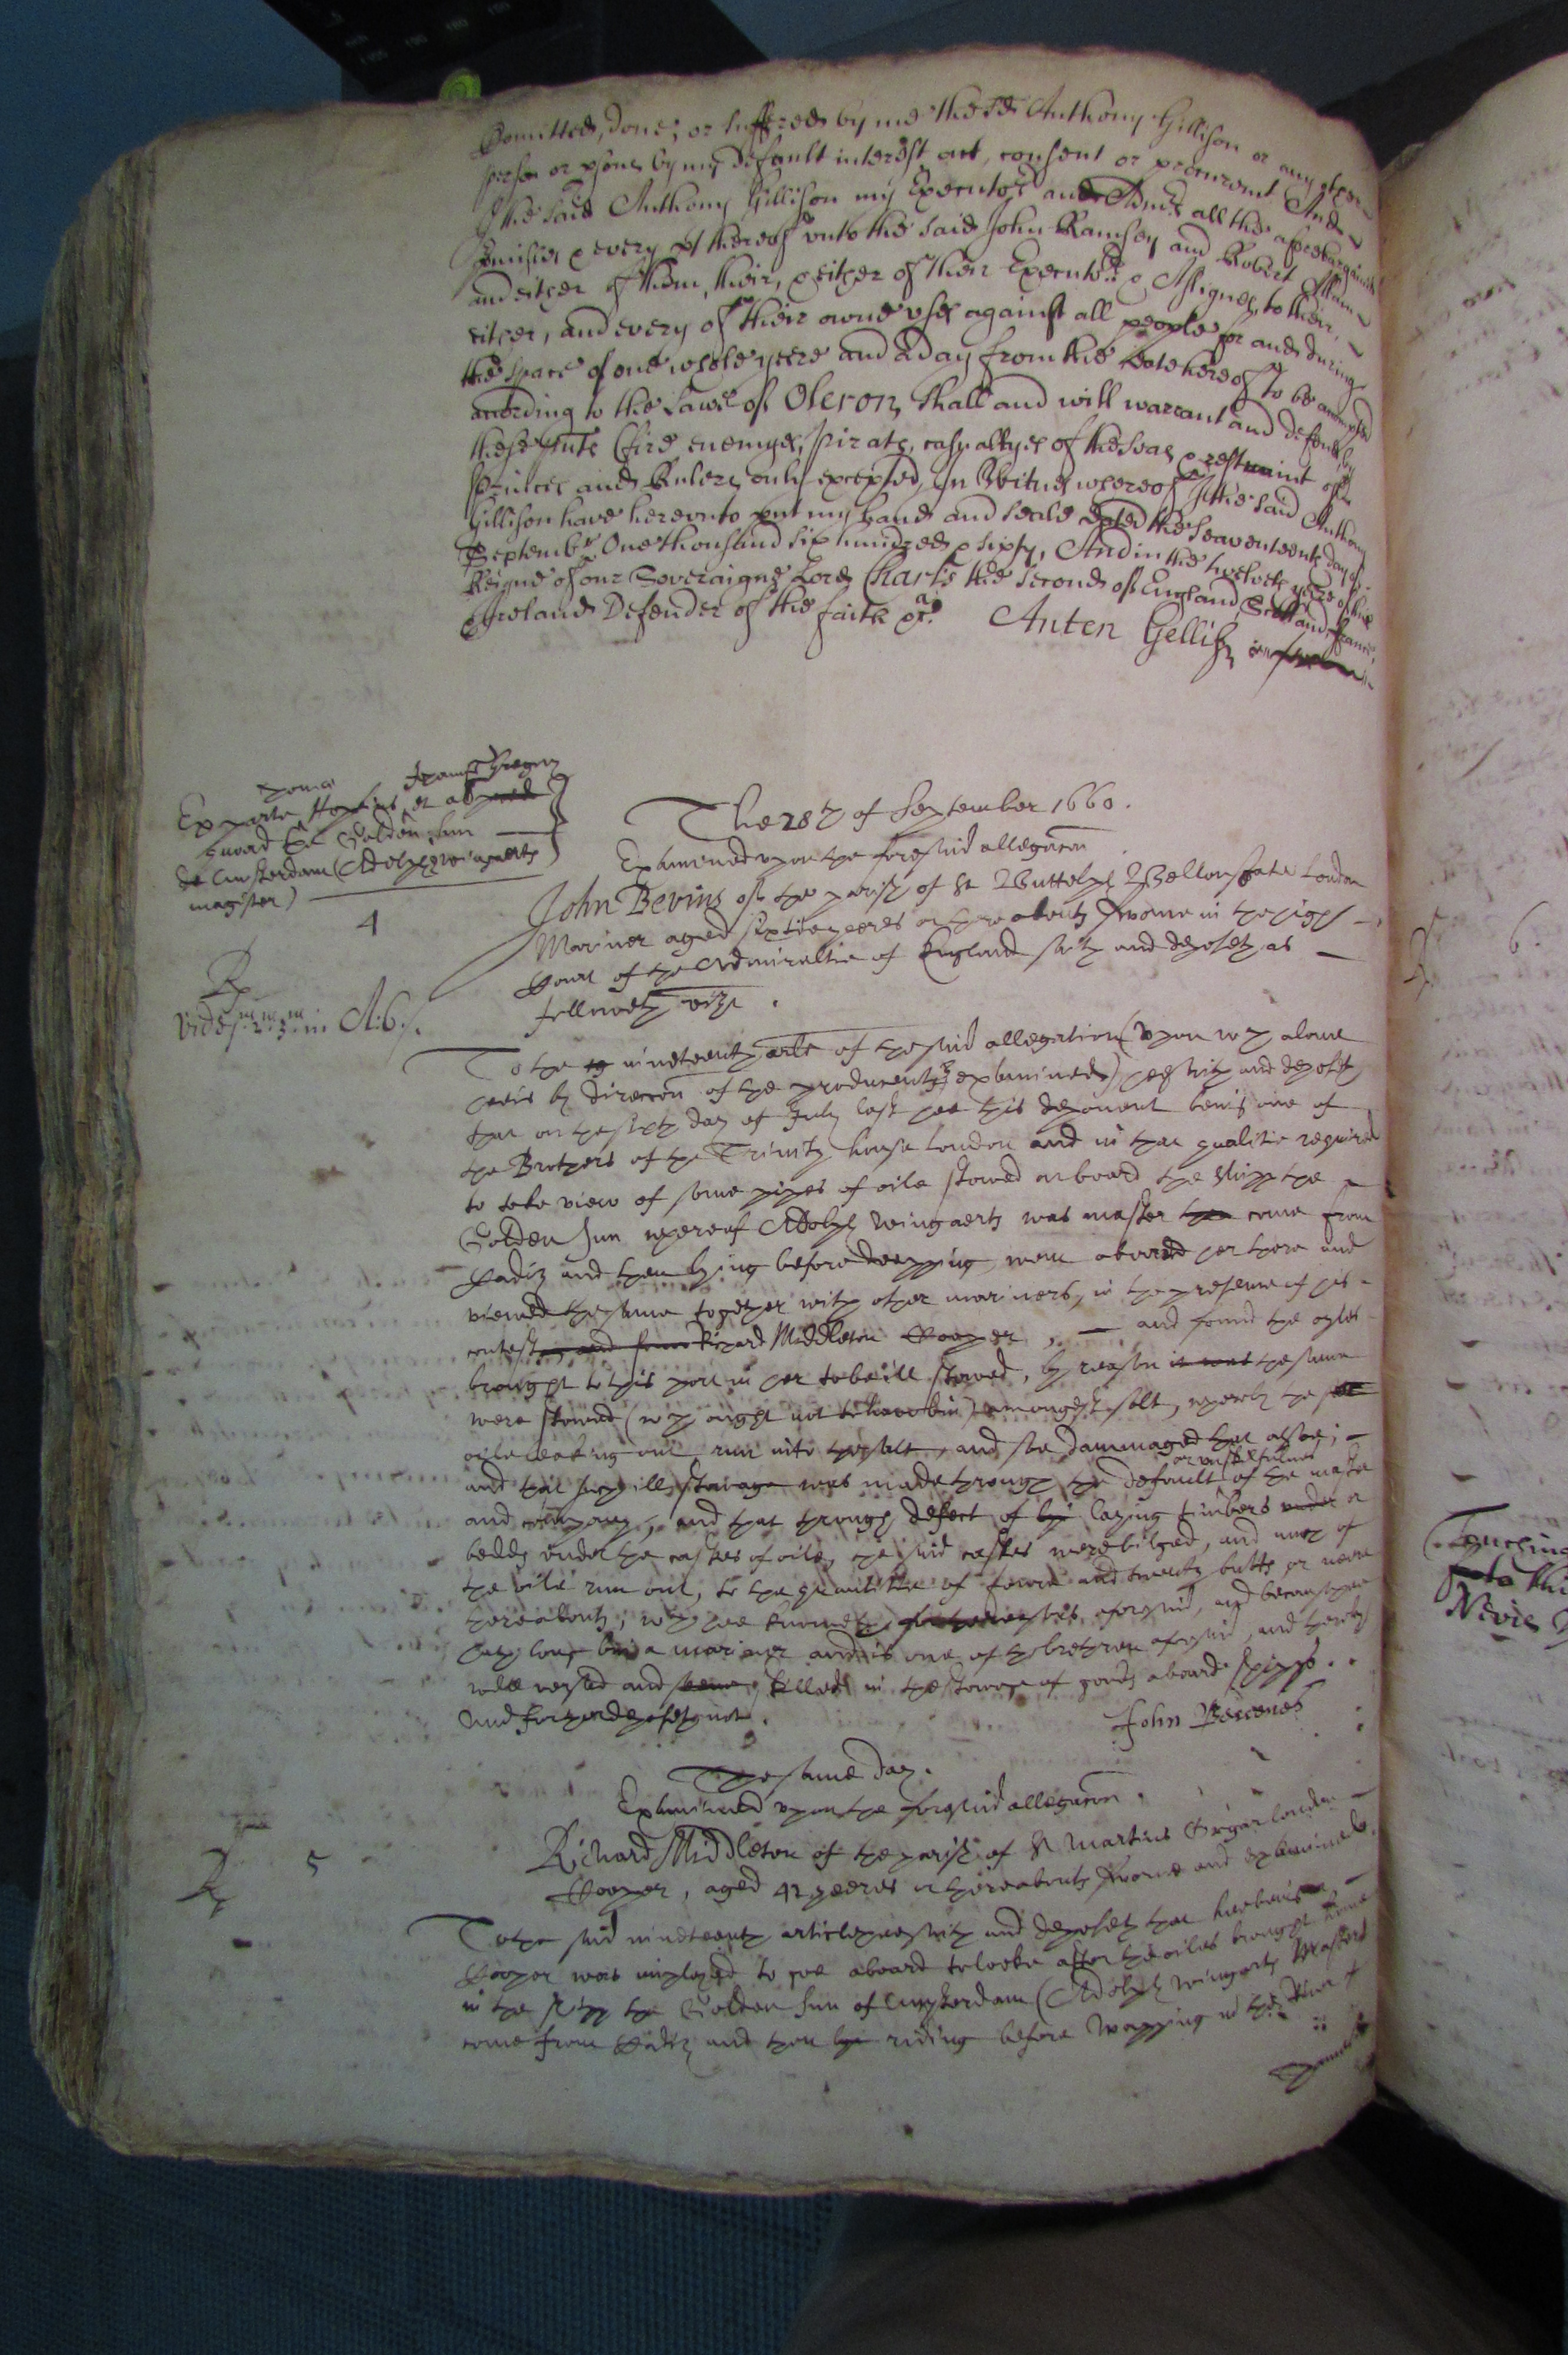 Comitted, done, or suffered by me the sd Anthony Gillison or any other
person or psons by my default interest act, consent or procuremt And
I the said Anthony Gillison my Executors and Admrs all the afore bargained
premisses & every pt thereof unto the said John Ramsey and Robert
and either of them, their, & either of their Executors & Assignes, to their,
either, and every of their owne uses against all people for and during
the space of one whole yeere and a day from the date hereof to be accompted
according to the Lawes of Oleron, shall and will warrant and defend by
these pnts (fire enemyes, Pirats, casualtyes of the seas & restraint of
Princes and Rulers only excepted, In Witnes whereof I the said Anthony
Gillison have hereunto put my hand and seale dated the seaventeenth day of
September One thousand six hundred & sixty, And in the twelveth yeere of the
Reigne of our Soveraigne Lord Charles the second of England, Scotland, France,
& Ireland Defender of the faith &ca. Anten Gellis
Ex parte Hopkins et al
quoad the Golden Sun
de Amsterdam (Adolph Weingaerts
magister)
4
Rp
The 28th of September 1660.
Examined upon the foresaid allegacon
John Bevins of the parish of St Buttolph Billinsgate London
Mariner aged sixtie yeeres or there abouts sworne in the high
Court of the Admiraltie of England saith and deposeth as
followeth vizt.
To the 19 nineteenth arle of the said allegation (upon wch alone
hee is by direccon of the producents examined) hee saith and deposeth
that on the sixth day of July last hee this deponent being one of
the Brothers of the Trinity house London and in that qualitie required
to take view of some pipes of oile stowed on board the shipp the
Golden Sun whereof Adolph Weingaerts was master the come from
Cadiz and then lying before Wapping, went aboard her there and
viewed the same together with other mariners, in the presence of his
contest and Richard Middleton Cooper, and found the oyles
brought to this port in her to be ill stowed, by reason it was the same
were stowed (wch ought not to have bin) amongst salt, whereby the
oile leaking out run into the salt, and soe dammaged that alsoe;
and that such ill stowage was made through the default or unskilfulnes of the master
and company, and that through defect of lyi laying timbers under or
bedds under the caskes of oile, the said caskes were bilged, and much of
the oile run out, to the quantitie of foure and twenty butts or neere
thereabouts; wch hee knoweth aforesaid, and because hee
hath long bin a mariner and is one of the brethren aforesaid, and thereby
well versed and skilled in the stowage of goods aboard shipps.
And further deposeth not.
John Bevenes
The same day.
Examined upon the foresaid allegacon.
Rp 5
Richard Middleton of the parish of St Martins Orgar London
Cooper, aged 42 yeeres or thereabouts sworne and examined.
To the said nineteenth article hee saith and deposeth that hee being a
Cooper was imployed to goe aboard to looke after the oiles brought home
in the shipp the Golden Sun of Amsterdam (Adolph Weingarts Master)
come from Cadiz and then lye riding before Wapping in the River of
Thames
6
Touching
Nevis